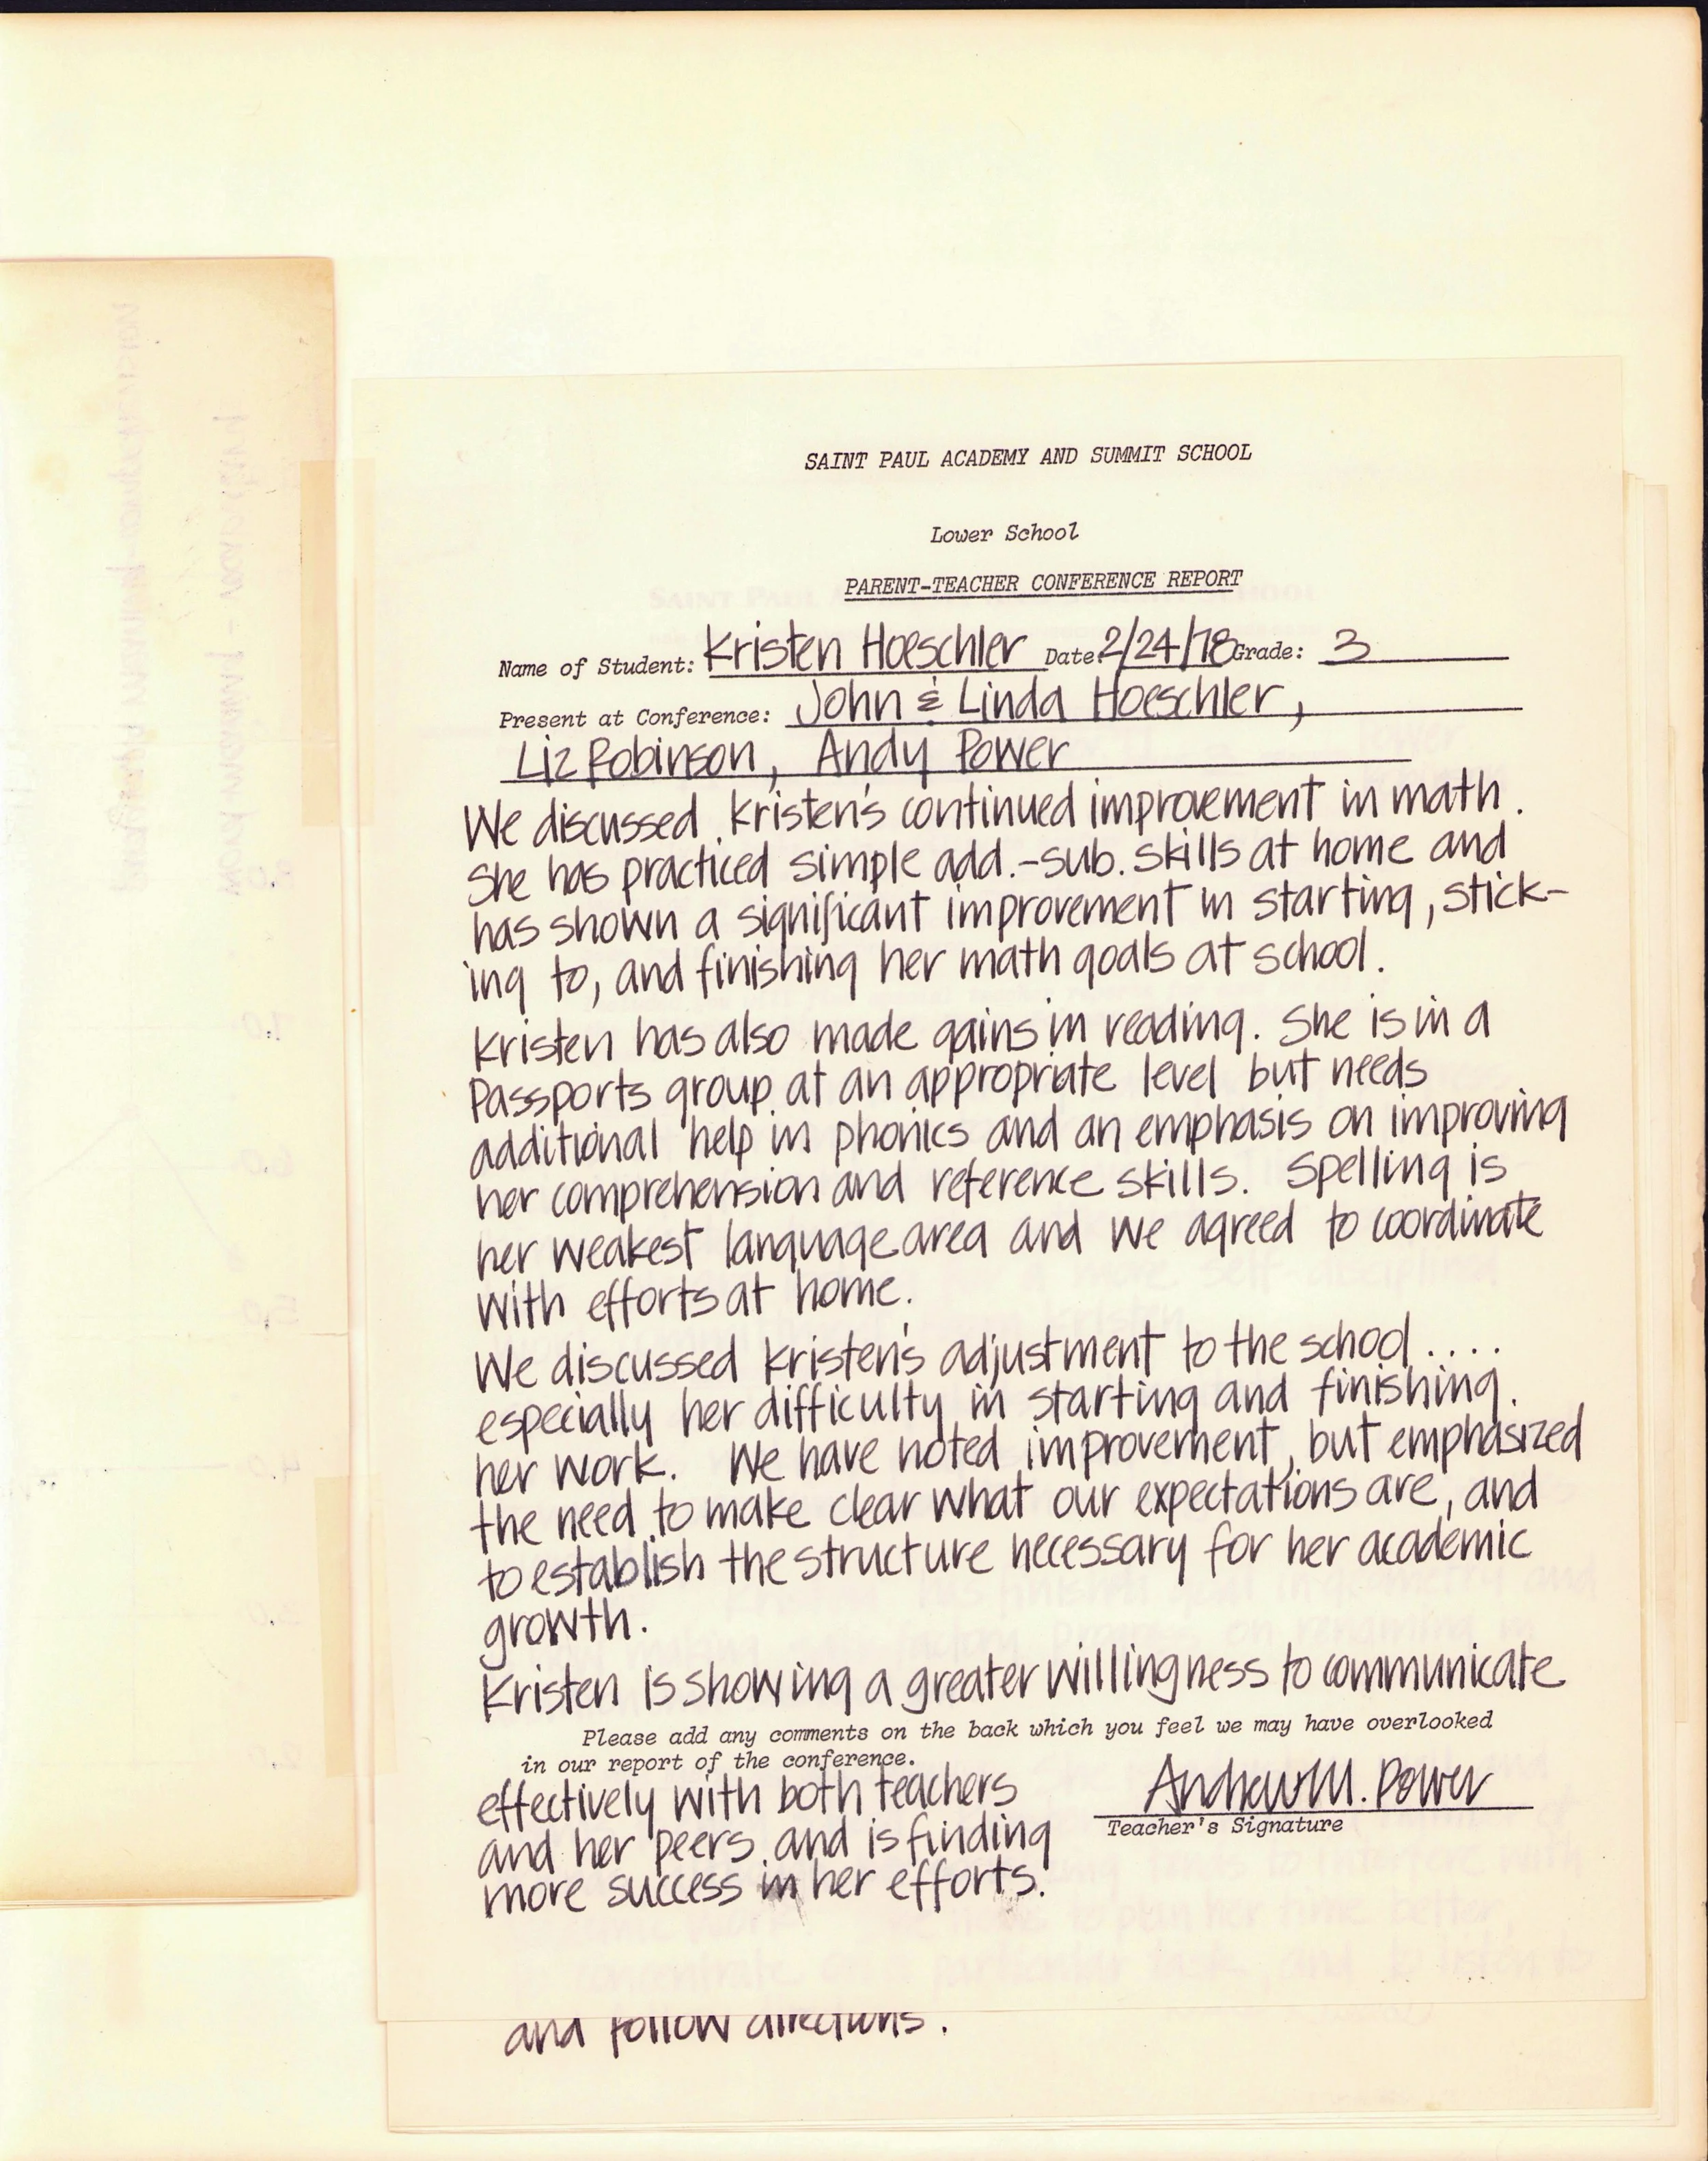 SAINT PAUL ACADEMY AND SUMMIT SCHOOL
Lower School
PARENT-TEACHER CONFERENCE REPORT
Name of Student: Kristen Hoeschler Date: 2/24/78 Grade: 3
Present at Conference: John & Linda Hoeschler,
Liz Robinson, Andy Power
We discussed Kristen's continued improvement in math.
She has practiced simple add.-sub. skills at home and
has shown a significant improvement in starting, stick-
ing to, and finishing her math goals at school.
Kristen has also made gains in reading. She is in a
Passports group at an appropriate level but needs
additional help in phonics and an emphasis on improving
her comprehension and reference skills. Spelling is
her weakest language area and we agreed to coordinate
with efforts at home.
We discussed Kristen's adjustment to the school ....
especially her difficulty in starting and finishing
her work. We have noted improvement, but emphasized
the need to make clear what our expectations are, and
to establish the structure necessary for her academic
growth.
Kristen is showing a greater willingness to communicate
Please add any comments on the back which you feel we may have overlooked
in our report of the conference.
effectively with both teachers
and her peers and is finding
more success in her efforts.
Andrew M. Power
Teacher's Signature
and follow directions.